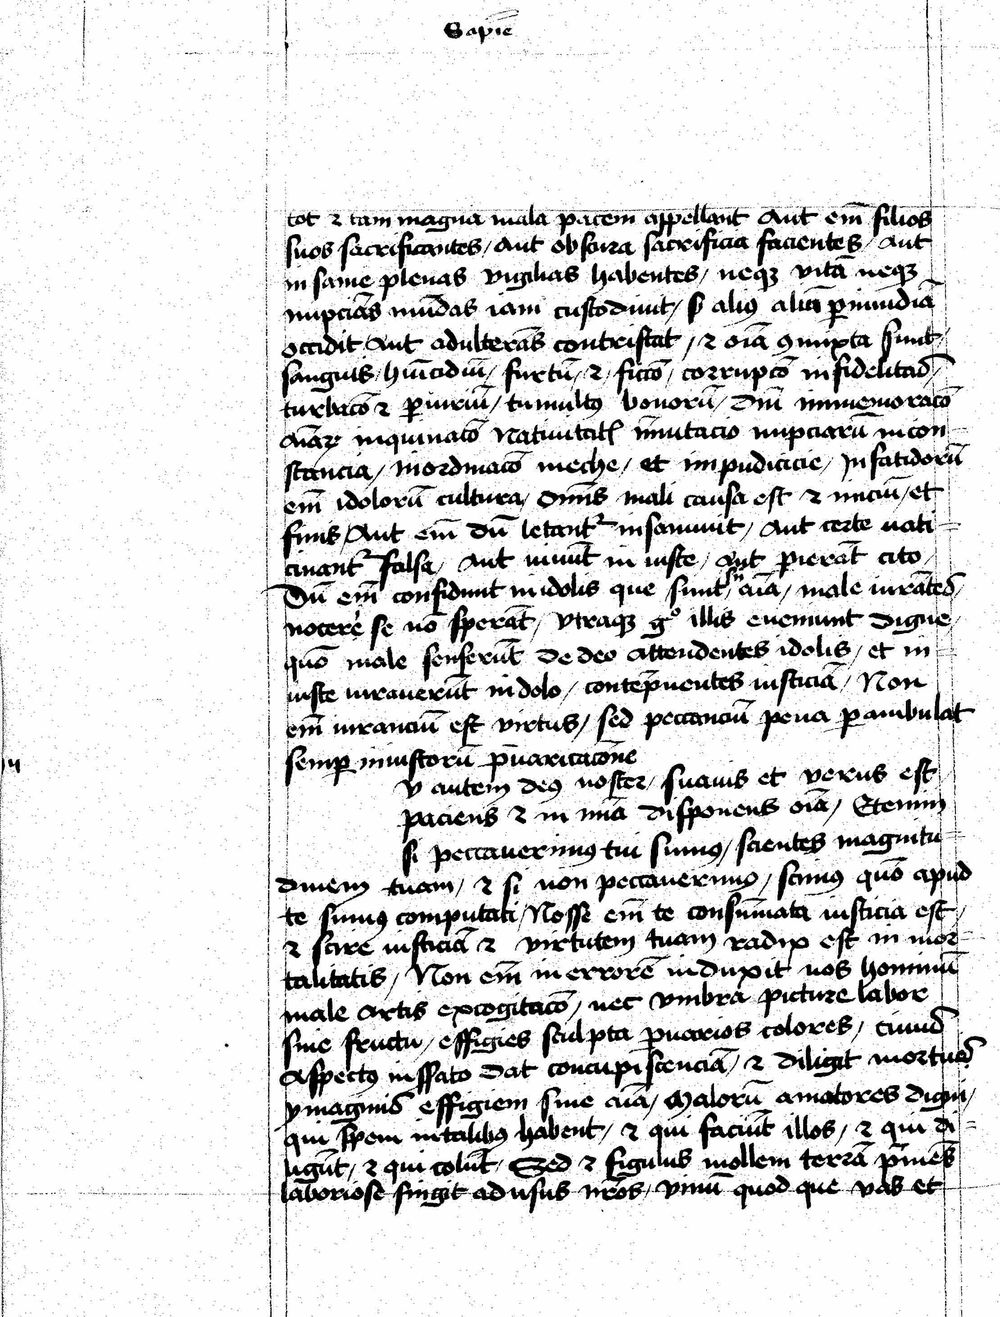 Sapie͞
tot ⁊ tam magna mala pacem appellant Aut em̄ filios
suos sacrificantes / Aut obscura sacrificia facientes / Aut
insanie plenas vigilias habentes / neqꝫ vitā neqꝫ
nupciās mūdas iam custodiunt / sꝫ aliꝰ aliū ꝑ inuidiā
occidit Aut adulterās contristat / ⁊ oīa ꝯmixta sunt /
sanguis / homicidiū / furtū / ⁊ / ficcō / corrupcō infidelitas /
turbacō ⁊ ꝑiuriū / tumultꝰ bonorū / dn̄i immemoracō
aīaꝝ inquinacō Natiuitatis īmutacio nupciarū incon=
stancia / inordinacō meche / et impudicicie / Infandorū
em̄ idolorū cultura / omīs mali causa est ⁊ iniciū / et
finis / Aut em̄ dū letantᷣ insaniunt / Aut certe uati=
cinantᷣ falsa / Aut uiuūt in iuste / Aut pierāt cito /
Dū em̄ confidunt in idolis que sunt sn̄ aīa / male iurātes /
nocere se nō sperāt / vtraqꝫ gͦ illis eueniunt digne /
quō male senserūt de deo attendentes idolis / et in=
iuste iurauerūt in dolo / contēpnentes iusticiā / Non
em̄ iuranciū est virtus / sed peccanciū pena ꝑambulat
semꝑ iniustorū p̄uaricacōne
v autem deꝰ noster / suauis et verus est /
paciens ⁊ in mīa disponens oīa / Etenim
si peccauerimꝰ tui sumꝰ / scientes magnitu=
dinem tuam / ⁊ si non peccauerimꝰ / scimꝰ quō apud
te sumꝰ computati / Nosse em̄ te consūmata iusticia est /
⁊ scire iusticiā ⁊ virtutem tuam radix est in mor=
talitatis / Non em̄ in errorē induxit nos hominū
male artis excogitacō / nec vmbra picture labor
sine fructu / effigies sculpta ꝑ uarios colores / cuius
Aspectꝰ inssato dat concupiscenciā / ⁊ diligit mortue
ymaginis effigiem sine aīa / Malorū amatores digni /
qui spem in talibꝰ habent / ⁊ qui faciūt illos / ⁊ qui di=
ligūt / ⁊ qui colūt / Sed ⁊ figulus mollem terrā p̄mēs
laboriose fingit ad usus nr̄os / vnū quod que vas et